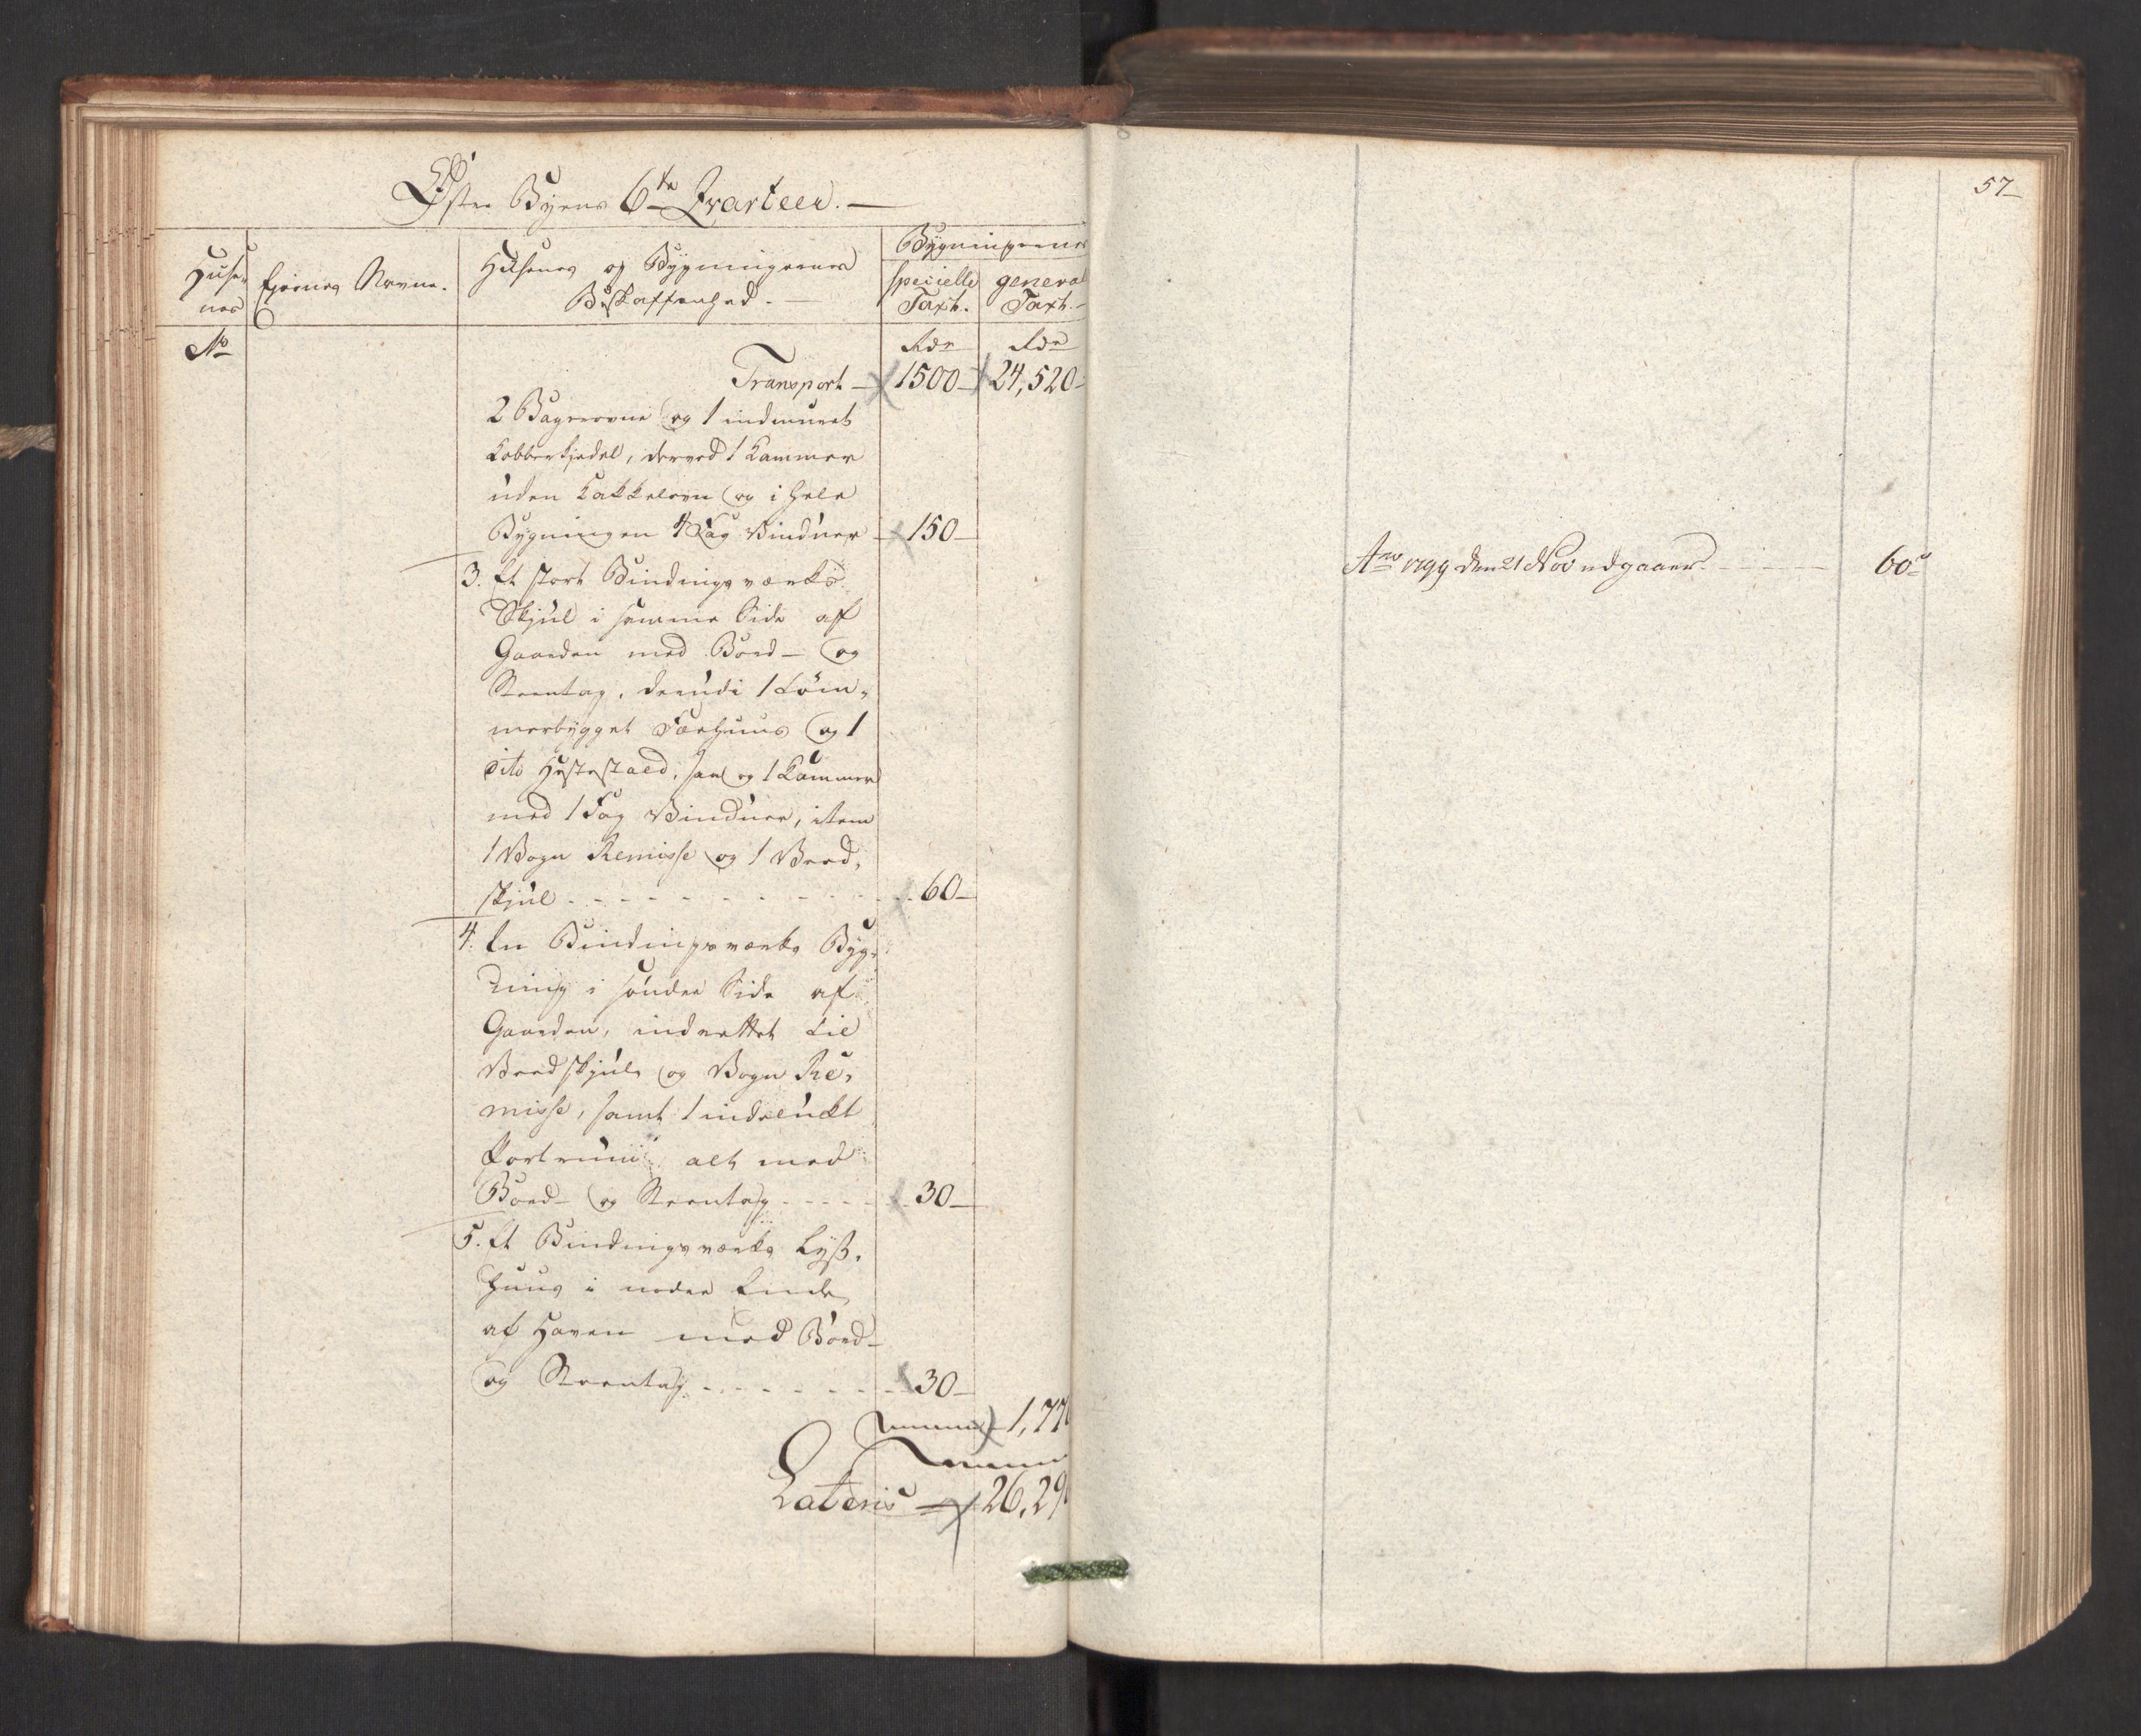 Østre Byens 6te Qvarteer.
Huse-
nes
Ejernes Navne.
Husenes og Bygningernes
Beskaffenhed.
Bygningernes
specielle
Taxt.
general
Taxt.
No
Rdr
Rdr
Transport - 1500 - 24,520 -
2 Bagerovne og 1 indmuret
Kobberkjedel, derved 1 Kammer
uden Kakkelovn og i hele
Bygningen 4 Fag Vinduer - 150 -
3. Et stort Bindingsværks
Skjul i samme Side af
Gaarden med Bord- og
Steentag, derudi 1 töm-
merbygget Færhuus og 1
dito Hestestald, saa og 1 Kammer
med 1 Fag Vinduer, item
1 Vogn Remisse og 1 Veed-
skjul - - - 60 -
4. En Bindingsværks Byg-
ning i söndre Side af
Gaarden, indrettet til
Veedskjul og Vogn Re-
misse, samt 1 indelukt
Portrum, alt med
Bord- og Steentag - - - 30 -
5. Et Bindingsværks Lyst-
huus i nordre Ende
af Haven med Bord-
og Steentag - - - 30 -
1,770
Lateris - 26,290
57
Ano 1799 den 21 Nov udgaaer - - - 60